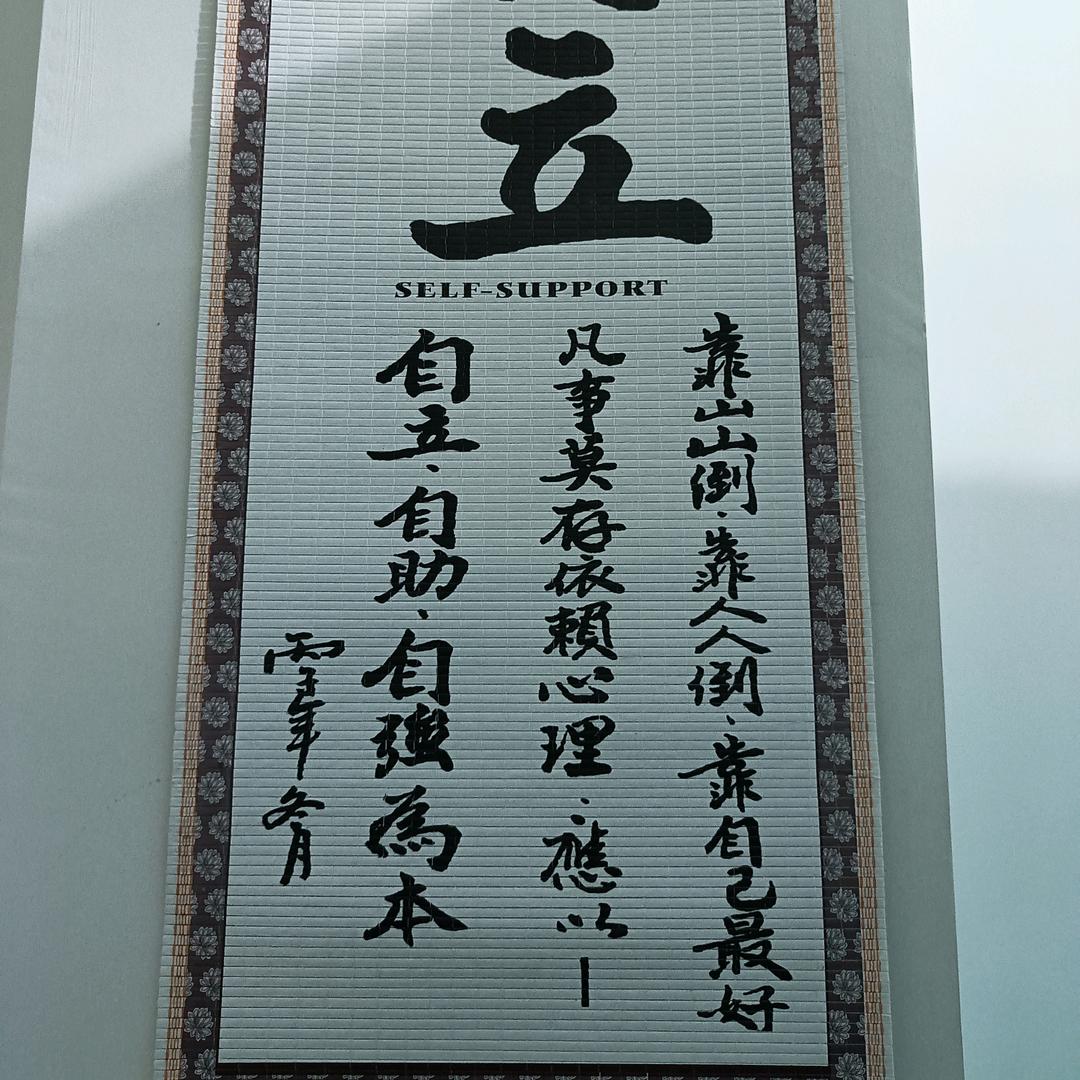 立
SELF-SUPPORT
靠山山倒·靠人人倒·靠自己最好
凡事莫存依賴心理·應以—
自立·自助·自強為本
年冬月